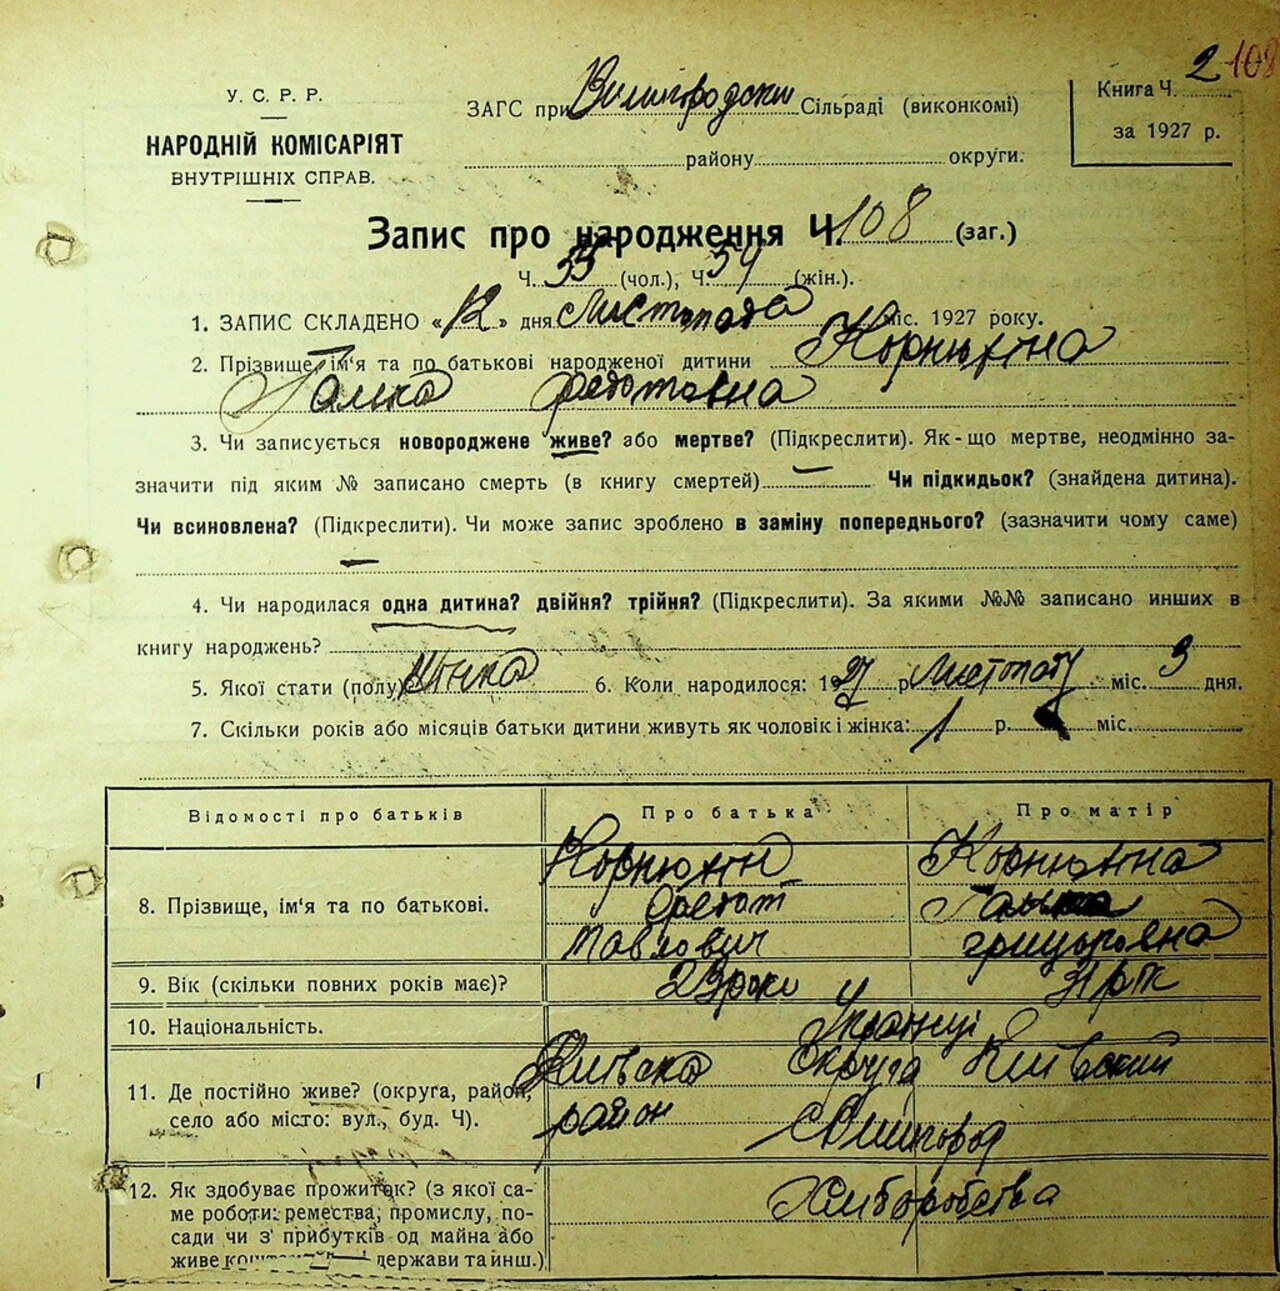 2 108
У. С. Р. Р.
НАРОДНІЙ КОМІСАРІЯТ
ВНУТРІШНІХ СПРАВ.
ЗАГС при Вишгородски Сільраді (виконкомі)
району округи.
Книга Ч. 2
за 1927 р.
Запис про народження Ч. 108 (заг.)
Ч. 55 (чол.), Ч. 54 (жін.).
1. ЗАПИС СКЛАДЕНО «12» дня Листопада міс. 1927 року.
2. Прізвище, ім'я та по батькові народженої дитини Корнюхіна
Галька Федотовна
3. Чи записується новороджене живе? або мертве? (Підкреслити). Як-що мертве, неодмінно за-
значити під яким № записано смерть (в книгу смертей) — Чи підкидьок? (знайдена дитина).
Чи всиновлена? (Підкреслити). Чи може запис зроблено в заміну попереднього? (зазначити чому саме)
—
4. Чи народилася одна дитина? двійня? трійня? (Підкреслити). За якими №№ записано инших в
книгу народжень?
5. Якої стати (полу) жінка 6. Коли народилося: 1927 р. Листопаду міс. 9 дня.
7. Скільки років або місяців батьки дитини живуть як чоловік і жінка: 1 р. міс.
Відомості про батьків Про батька Про матір
8. Прізвище, ім'я та по батькові.
Корнюхін Корнюхіна
Федот Галька
Павлович Грицьковна
9. Вік (скільки повних років має)? 23 роки 21 рік
10. Національність. Українці
11. Де постійно живе? (округа, район, Київска Округа Київский
село або місто: вул., буд. Ч). район с Вишгород
12. Як здобуває прожиток? (з якої са- Хлиборобства
ме роботи: ремества, промислу, по-
сади чи з прибутків од майна або
живе коштом держави та инш.)